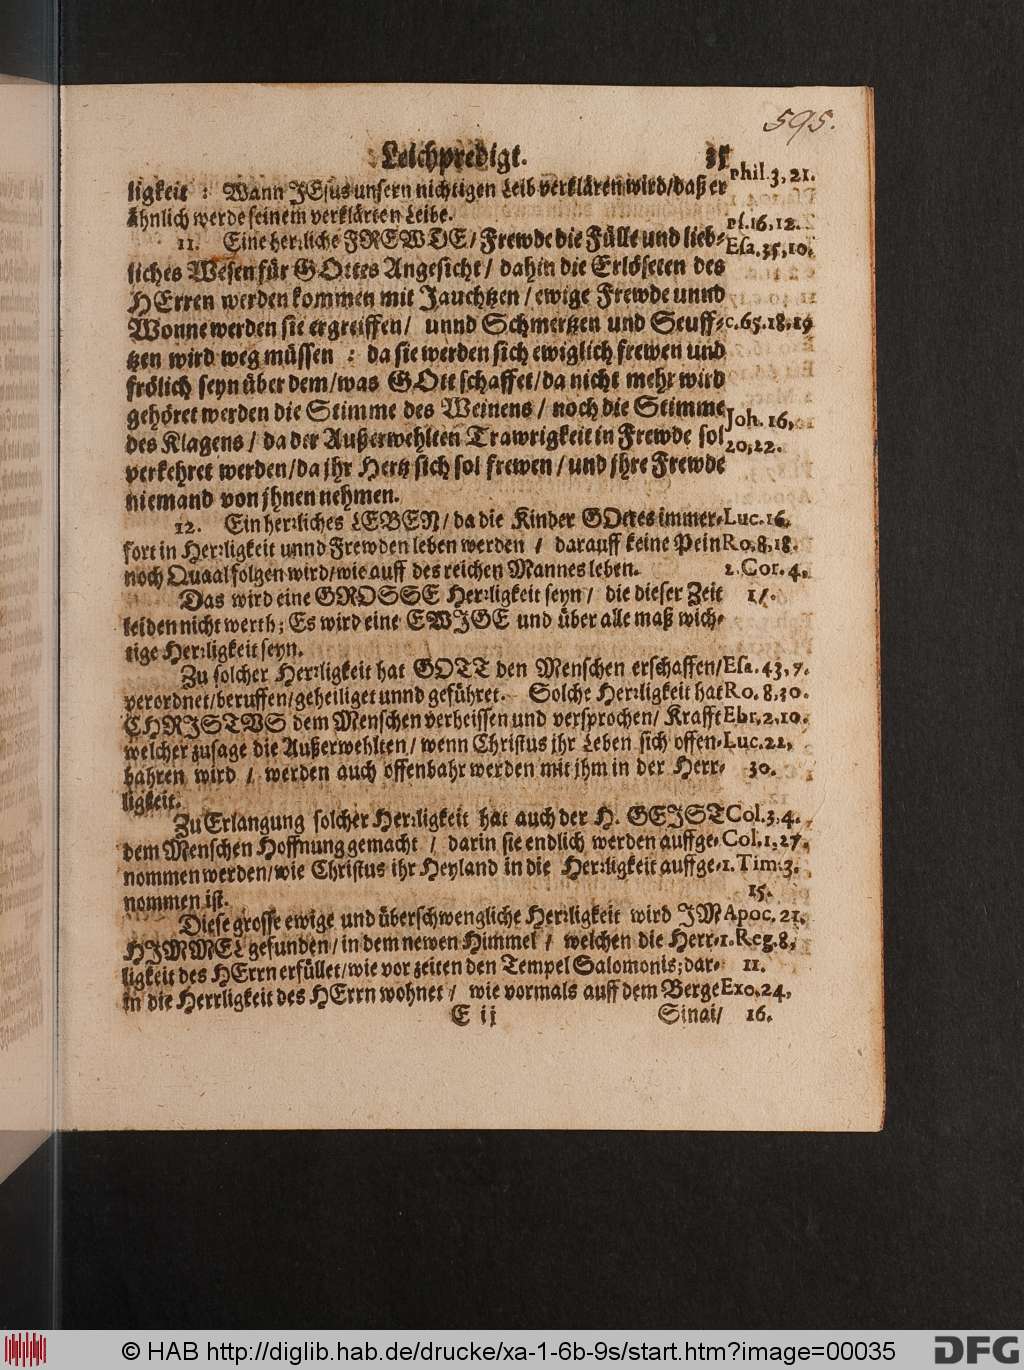 595.
Leichpredigt.
ligkeit : Wann JEsus unsern nichtigen Leib verklären wird/daß er Phil.3,21.
ähnlich werde seinem verklärten Leibe.
11. Eine herꝛliche FREWDE/ Frewde die Fülle und lieb- Ps.16,12.
liches Wesen für GOttes Angesicht/ dahin die Erlöseten des Esa.35,10.
HErren werden kommen mit Jauchtzen/ ewige Frewde unnd
Wonne werden sie ergreiffen/ unnd Schmertzen und Seuff- c.65.18.19
tzen wird weg müssen : da sie werden sich ewiglich frewen und
frölich seyn über dem/was GOtt schaffet/da nicht mehr wird
gehöret werden die Stimme des Weinens/ noch die Stimme Joh. 16,
des Klagens/ da der Außerwehlten Trawrigkeit in Frewde sol 20,22.
verkehret werden/da jhr Hertz sich sol frewen/und jhre Frewde
niemand von jhnen nehmen.
12. Ein herꝛliches LEBEN/ da die Kinder GOttes immer- Luc.16.
fort in Herꝛligkeit unnd Frewden leben werden / darauff keine Pein Ro.8,18.
noch Quaal folgen wird/wie auff des reichen Mannes leben. 2.Cor.4,
Das wird eine GROSSE Herꝛligkeit seyn/ die dieser Zeit 17.
leiden nicht werth; Es wird eine EWJGE und über alle maß wich-
tige Herꝛligkeit seyn.
Zu solcher Herꝛligkeit hat GOTT den Menschen erschaffen/ Esa.43,7.
verordnet/beruffen/geheiliget unnd geführet. Solche Herꝛligkeit hat Ro.8,30.
CHRJSTVS dem Menschen verheissen und versprochen/ Krafft Ebr.2,10.
welcher zusage die Außerwehlten/ wenn Christus jhr Leben sich offen- Luc.22,
bahren wird / werden auch offenbahr werden mit jhm in der Herr- 30.
ligkeit.
Zu Erlangung solcher Herꝛligkeit hat auch der H. GEJST Col.3,4.
dem Menschen Hoffnung gemacht / darin sie endlich werden auffge- Col.1,27.
nommen werden/wie Christus ihr Heyland in die Herꝛligkeit auffge- 1.Tim.3.
nommen ist. 15.
Diese grosse ewige und überschwengliche Herꝛligkeit wird JM Apoc.21.
HJMMEL gefunden/in dem newen Himmel / welchen die Herr- 1.Reg.8,
ligkeit des HErrn erfüllet/wie vor zeiten den Tempel Salomonis; dar- 11.
in die Herrligkeit des HErrn wohnet/ wie vormals auff dem Berge Exo.24,
E ij Sinai/ 16.
© HAB http://diglib.hab.de/drucke/xa-1-6b-9s/start.htm?image=00035
DFG